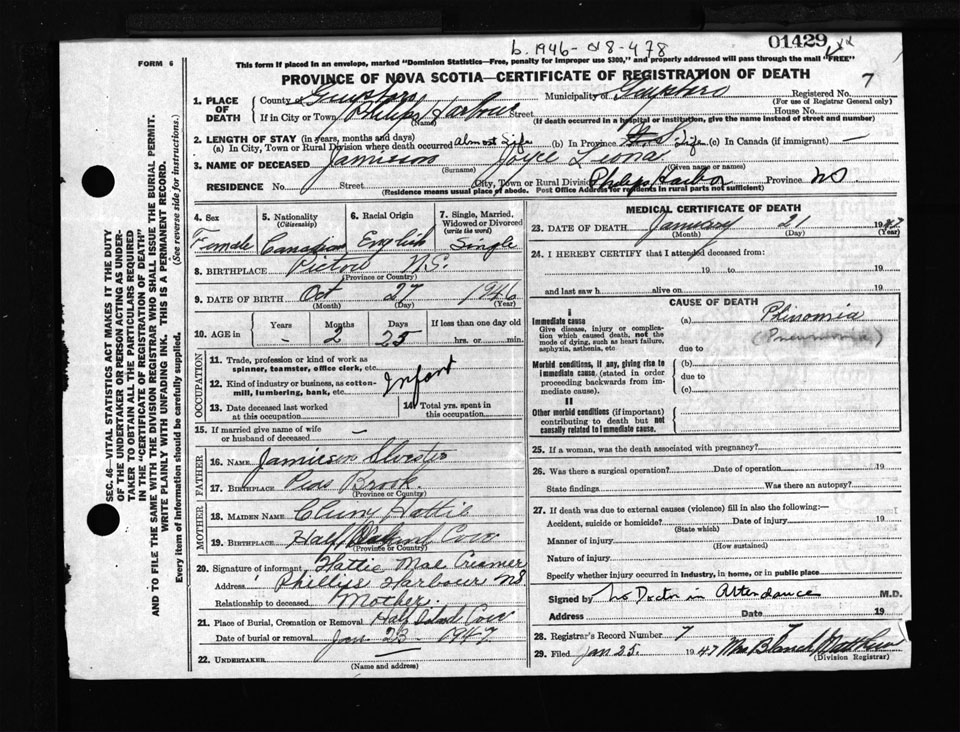 b. 1946-018-478
01429
FORM 6
This form if placed in an envelope, marked "Dominion Statistics—Free, penalty for improper use $300," and properly addressed will pass through the mail "FREE"
PROVINCE OF NOVA SCOTIA—CERTIFICATE OF REGISTRATION OF DEATH
7
1. PLACE OF DEATH
County Municipality of Registered No.
(For use of Registrar General only)
If in City or Town Phillips Harbour Street House No.
(Name) (If death occurred in a hospital or institution, give the name instead of street and number)
2. LENGTH OF STAY (in years, months and days)
(a) In City, Town or Rural Division where death occurred Almost Life (b) In Province Life (c) In Canada (if immigrant) —
3. NAME OF DECEASED Jamieson Joyce Leona
(Surname) (Given name or names)
RESIDENCE No. Street City, Town or Rural Division Philips Harbor Province NS
(Residence means usual place of abode. Post Office Address for residents in rural parts not sufficient)
4. Sex Female
5. Nationality (Citizenship) Canadian
6. Racial Origin English
7. Single, Married, Widowed or Divorced (write the word) Single
8. BIRTHPLACE Pictou N.S.
(Province or Country)
9. DATE OF BIRTH Oct 27 1946
(Month) (Day) (Year)
10. AGE in Years Months Days If less than one day old
- 2 25 hrs. or min.
OCCUPATION
11. Trade, profession or kind of work as spinner, teamster, office clerk, etc.
12. Kind of industry or business, as cotton-mill, lumbering, bank, etc.
Infant
13. Date deceased last worked at this occupation
14. Total yrs. spent in this occupation
15. If married give name of wife or husband of deceased —
FATHER
16. NAME Jamieson
17. BIRTHPLACE Brook.
(Province or Country)
MOTHER
18. MAIDEN NAME Hattie
19. BIRTHPLACE Half Island Cove
(Province or Country)
20. Signature of informant Hattie Mae Creamer
Address Phillips Harbour NS
Relationship to deceased Mother.
21. Place of Burial, Cremation or Removal Half Island Cove
Date of burial or removal Jan 23 1947
22. UNDERTAKER
(Name and address)
MEDICAL CERTIFICATE OF DEATH
23. DATE OF DEATH January 21 1947
(Month) (Day) (Year)
24. I HEREBY CERTIFY that I attended deceased from:
19 to 19
and last saw h alive on 19
CAUSE OF DEATH
I
Immediate cause
Give disease, injury or complication which caused death, not the mode of dying, such as heart failure, asphyxia, asthenia, etc
(a) Phinomia
(Pneumonia)
due to
Morbid conditions, if any, giving rise to immediate cause, (stated in order proceeding backwards from immediate cause).
(b)
due to
(c)
II
Other morbid conditions (if important) contributing to death but not causally related to immediate cause.
25. If a woman, was the death associated with pregnancy?
26. Was there a surgical operation? Date of operation 19
State findings Was there an autopsy?
27. If death was due to external causes (violence) fill in also the following:—
Accident, suicide or homicide? Date of injury 19
(State which)
Manner of injury
(How sustained)
Nature of injury
Specify whether injury occurred in industry, in home, or in public place
Signed by No Doctor in Attendance M.D.
Address Date 19
28. Registrar's Record Number 7
29. Filed Jan 25. 1947 Mrs Blanch
(Division Registrar)
SEC. 46—VITAL STATISTICS ACT MAKES IT THE DUTY
OF THE UNDERTAKER OR PERSON ACTING AS UNDER-
TAKER TO OBTAIN ALL THE PARTICULARS REQUIRED
IN THE "CERTIFICATE OF REGISTRATION OF DEATH"
AND TO FILE THE SAME WITH THE DIVISION REGISTRAR WHO SHALL ISSUE THE BURIAL PERMIT.
WRITE PLAINLY WITH UNFADING INK. THIS IS A PERMANENT RECORD.
Every item of information should be carefully supplied. (See reverse side for instructions.)